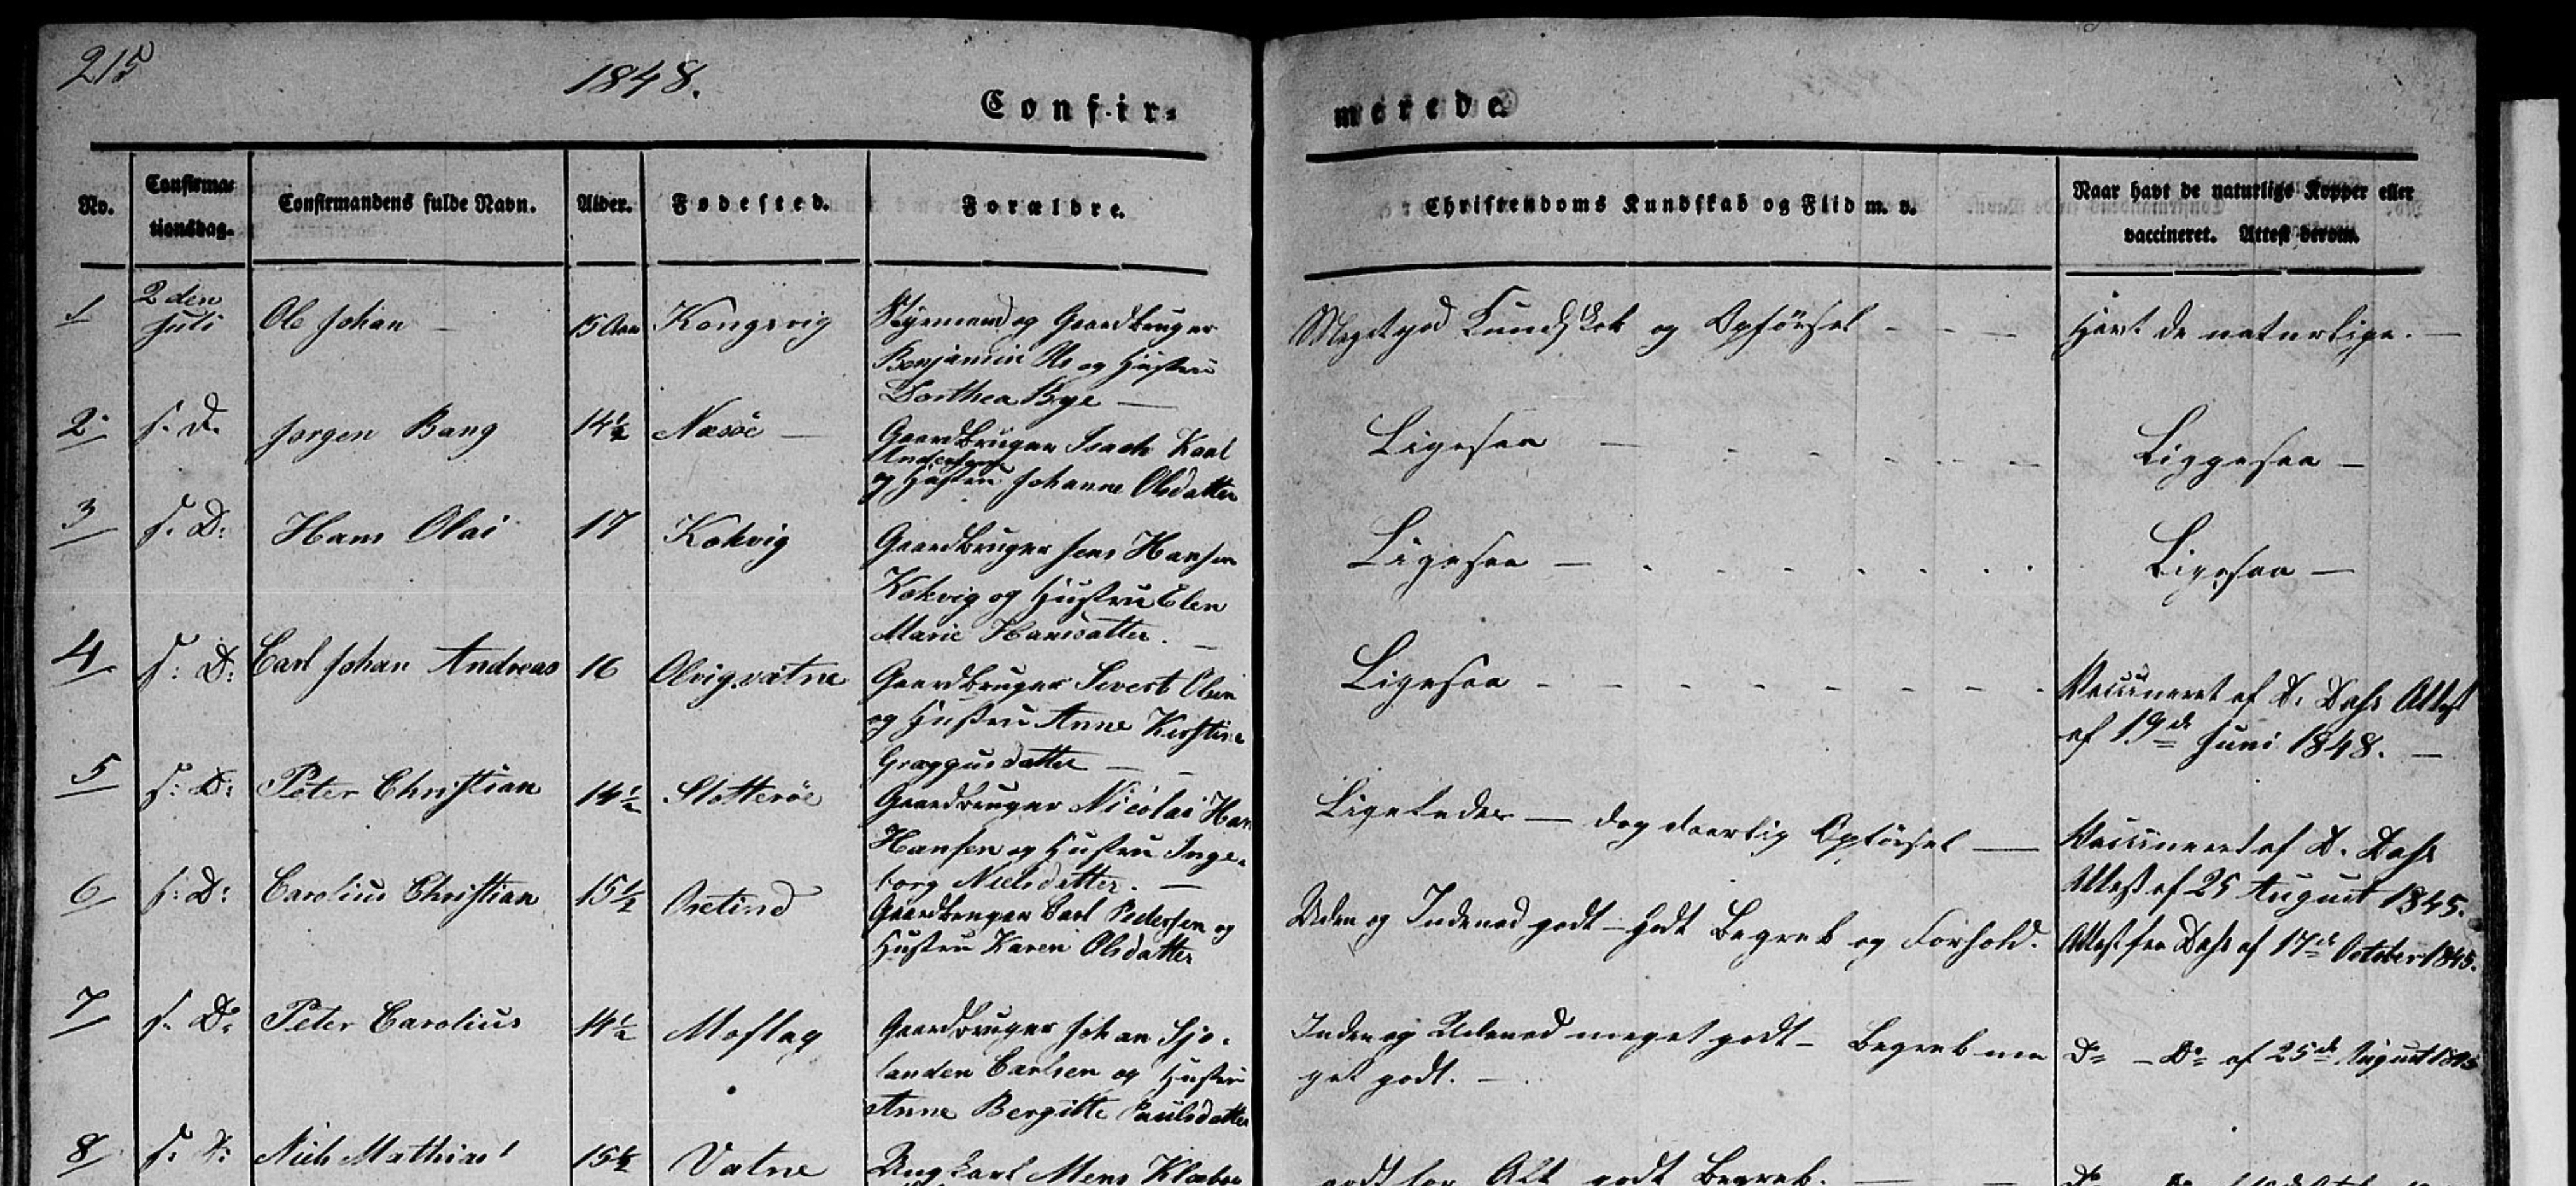 215
1848.
Confir-
merede
No.
Confirma-
tionsdag.
Confirmandens fulde Navn.
Alder.
Fødested.
Forældre.
Christendoms Kundskab og Flid m. v.
Naar havt de naturlige Kopper eller
vaccineret. Attest derom.
1
2den
Juli
Ole Johan —
15 Aar
Kongsvig
Styrmand og Gaardbruger
Benjamin Ols og Hustru
Dorthea Bye —
Meget god Kundskab og Opførsel - - -
Havt de naturlige. —
2
s. D.
Jørgen Bang
14½
Næsøe —
Gaardbruger Isach Karl
Andersen
og Hustru Johanne Olsdatter
Ligesaa —
Liggesaa —
3
s. D:
Hans Olai
17
Kokvig
Gaardbruger Jens Hansen
Kokvig og Hustru Elen
Marie Hansdatter. —
Ligesaa —
Ligesaa —
4
s: D:
Carl Johan Andreas
16
Olvigvatne
Gaardbruger Sivert Olsen
og Hustru Anne Kirstine
Græggusdatter —
Ligesaa -
Vaccineret af D. Dahs Attest
af 19de Juni 1848. —
5
s: D:
Peter Christian
14½
Slotterøe
Gaardbruger Nicolai Han
Hansen og Hustru Inge-
borg Nielsdatter. —
Ligeledes — dog daarlig Opførsel —
Vaccineret af D. Dahs
Attest af 25 August 1845.
6
s: D:
Carolius Christian
15½
Gaardbruger Carl Pedersen og
Hustru Karen Olsdatter
Uden og Indenad godt - Godt Begreb og Forhold.
Attest fra Dahs af 17de October 1845.
7
s. D:
Peter Carolius
14½
Moflag
Gaardbruger Johan Sjo-
landen Carlsen og Hustru
Anne Bergitte Paulsdatter
Inden og Udenad meget godt - Begreb me
get godt. —
Do - Do af 25de August 1845
8
s. D:
Niels Mathias
15½
Vatne
Ungkarl Mens Klæboe
godt for Alt godt Begreb.